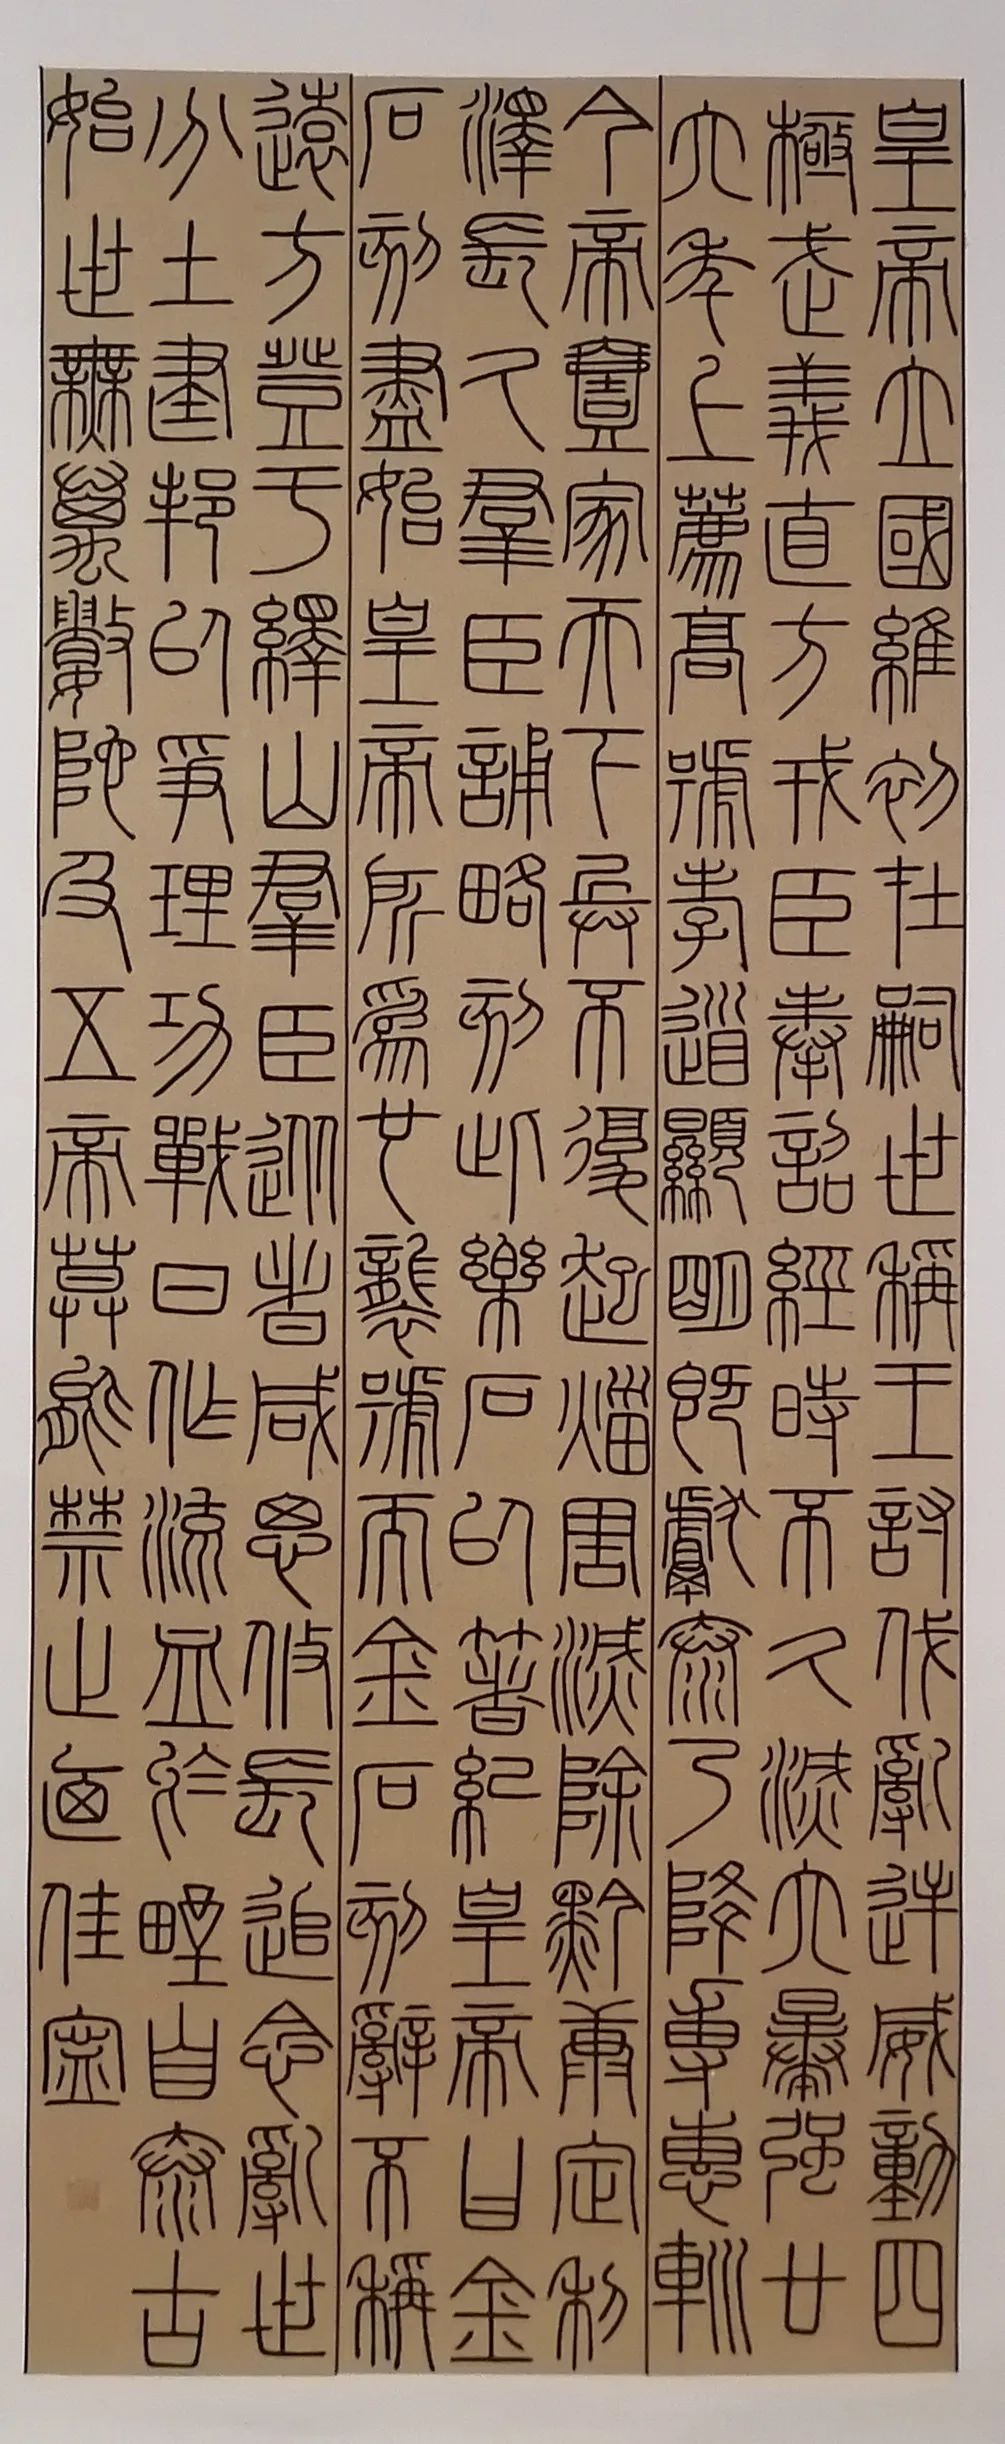 皇帝立國維初在嗣世稱王討伐亂逆威動四
極武義直方戎臣奉詔經時不久滅六暴強廿
六年上薦高號孝道顯明既獻泰乃降專惠
今帝壹家天下兵不復起災害滅除黔康定利
澤長久羣臣誦略刻此樂石以著紀皇帝曰金
石刻盡始皇帝所為也襲號而金石刻辭不稱
遠方登于繹山羣臣從者咸思攸長追念亂世
分土建邦以爭理功戰日作流血於野自泰古
始世無萬數陀及五帝莫能禁止迺佳